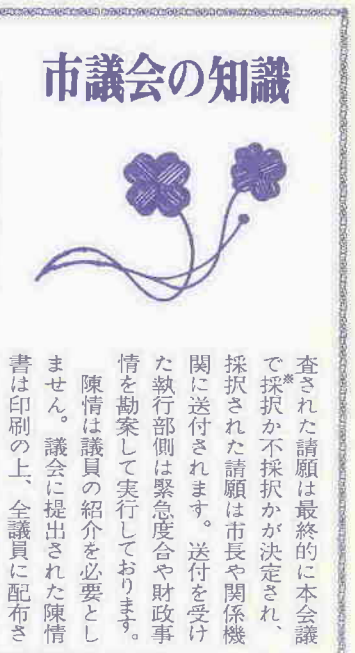 市議会の知識
査された請願は最終的に本会議
で採※択か不採択かが決定され、
採択された請願は市長や関係機
関に送付されます。送付を受け
た執行部側は緊急度合や財政事
情を勘案して実行しております。
陳情は議員の紹介を必要とし
ません。議会に提出された陳情
書は印刷の上、全議員に配布さ